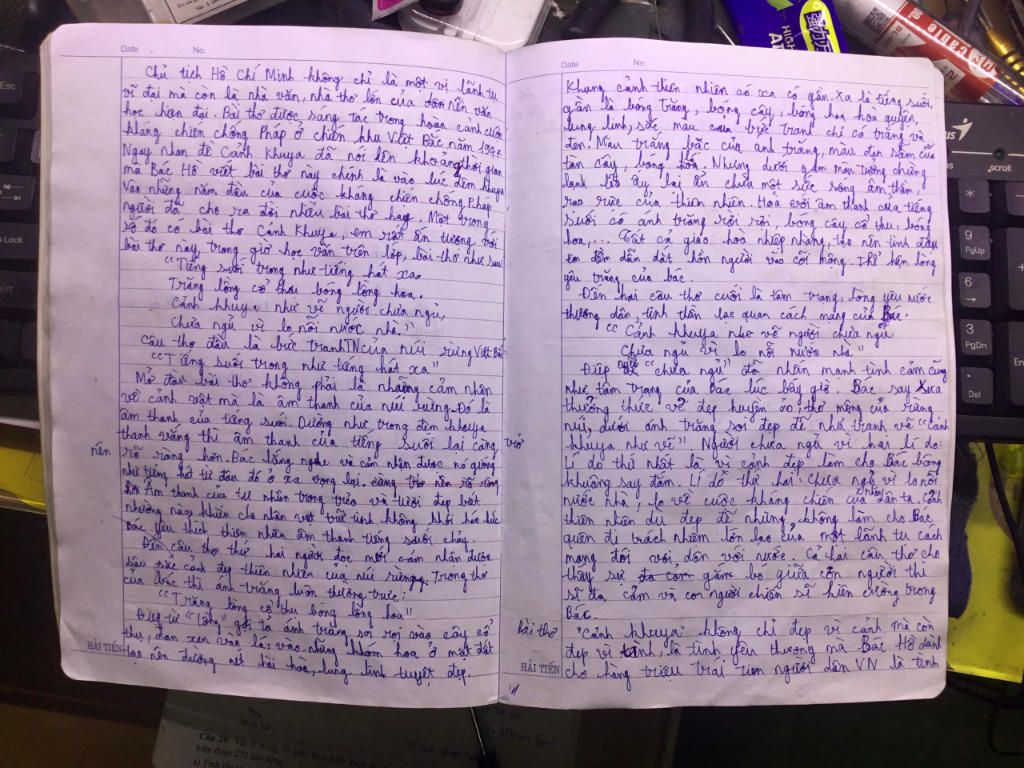 Date . . . . No.
Chủ tịch Hồ Chí Minh không chỉ là một vị lãnh tụ
vĩ đại mà còn là nhà văn, nhà thơ lớn của nền văn
học hiện đại. Bài thơ được sáng tác trong hoàn cảnh cuộc
kháng chiến chống Pháp ở chiến khu Việt Bắc năm 1947.
Ngay nhan đề Cảnh Khuya đã nói lên khoảng thời gian
mà Bác Hồ viết bài thơ này chính là vào lúc đêm khuya
Vào những năm đầu của cuộc kháng chiến chống Pháp
người đã cho ra đời nhiều bài thơ hay. Một trong
số đó có bài thơ Cảnh Khuya, em rất ấn tượng với
bài thơ này, trong giờ học văn trên lớp, bài thơ như sau:
"Tiếng suối trong như tiếng hát xa,
Trăng lồng cổ thụ bóng lồng hoa.
Cảnh khuya như vẽ người chưa ngủ,
Chưa ngủ vì lo nỗi nước nhà."
Câu thơ đầu là bức tranh TN của núi rừng Việt Bắc
"Tiếng suối trong như tiếng hát xa"
Mở đầu bài thơ không phải là những cảm nhận
về cảnh vật mà là âm thanh của núi rừng. Đó là
âm thanh của tiếng suối. Dường như trong đêm khuya
thanh vắng thì âm thanh của tiếng suối lại càng trở
nên rõ ràng hơn. Bác lắng nghe và cảm nhận được nó giống
như tiếng hát từ đâu đó ở xa vọng lại.
Âm thanh của tự nhiên trong trẻo và tươi đẹp biết
nhường nào, khiến cho nhân vật trữ tình không khỏi
Bác yêu thích thiên nhiên âm thanh tiếng suối chảy.
Đến câu thơ thứ hai người đọc mới cảm nhận được
sâu sắc cảnh đẹp thiên nhiên của núi rừng. Trong thơ
của bác thì ánh trăng luôn thường trực:
"Trăng lồng cổ thụ bóng lồng hoa"
Điệp từ "lồng" gợi tả ánh trăng soi rọi vào cây cổ
thụ, đan xen vào lá, vào những khóm hoa ở mặt đất
tạo nên đường nét hài hòa, lung linh tuyệt đẹp.
HẢI TIẾN
Date . . . . No.
Khung cảnh thiên nhiên có xa có gần. Xa là tiếng suối,
gần là bóng trăng, bóng cây, bóng hoa hòa quyện,
lung linh, sắc màu của bức tranh chỉ có trắng và
đen. Màu trắng bạc của ánh trăng, màu đen sẫm của
tán cây, bóng Nhưng dưới gam màu tưởng chừng
lạnh lẽo ấy lại ẩn chứa một sức sống âm thầm
rạo rực của thiên nhiên. Hòa với âm thanh của tiếng
suối có ánh trăng rọi rải bóng cây cổ thụ, bóng
hoa,... Tất cả giao hòa nhịp nhàng, tạo nên tình điệu
êm đềm dẫn dắt hồn người vào cõi mộng. Thể hiện lòng
yêu trăng của bác.
Đến hai câu thơ cuối là tâm trạng, lòng yêu nước
thương dân, tinh thần lạc quan cách mạng của Bác.
"Cảnh khuya như vẽ người chưa ngủ
Chưa ngủ vì lo nỗi nước nhà"
Điệp ngữ "chưa ngủ" đã nhấn mạnh tình cảm cũng
như tâm trạng của Bác lúc bấy giờ. Bác say sưa
thưởng thức vẻ đẹp huyền ảo, thơ mộng của rừng
núi, dưới ánh trăng soi đẹp đẽ như tranh vẽ "Cảnh
khuya như vẽ". Người chưa ngủ vì hai lí do:
Lí do thứ nhất là vì cảnh đẹp làm cho Bác bâng
khuâng say đắm. Lí do thứ hai: chưa ngủ vì lo nỗi
nước nhà, lo về cuộc kháng chiến của nhân dân ta. Cảnh
thiên nhiên dù đẹp đẽ nhưng không làm cho Bác
quên đi trách nhiệm lớn lao của một lãnh tụ cách
mạng đối với dân với nước. Cả hai câu thơ cho
thấy sự gắn bó giữa con người thi
sĩ đa cảm và con người chiến sĩ kiên cường trong
Bác.
bài thơ "Cảnh khuya" không chỉ đẹp vì cảnh mà còn
đẹp vì tình, là tình yêu thương mà Bác Hồ dành
cho hàng triệu trái tim người dân VN là tình
HẢI TIẾN
Esc
scroll
9
PgUp
6
3
PgDn
Del